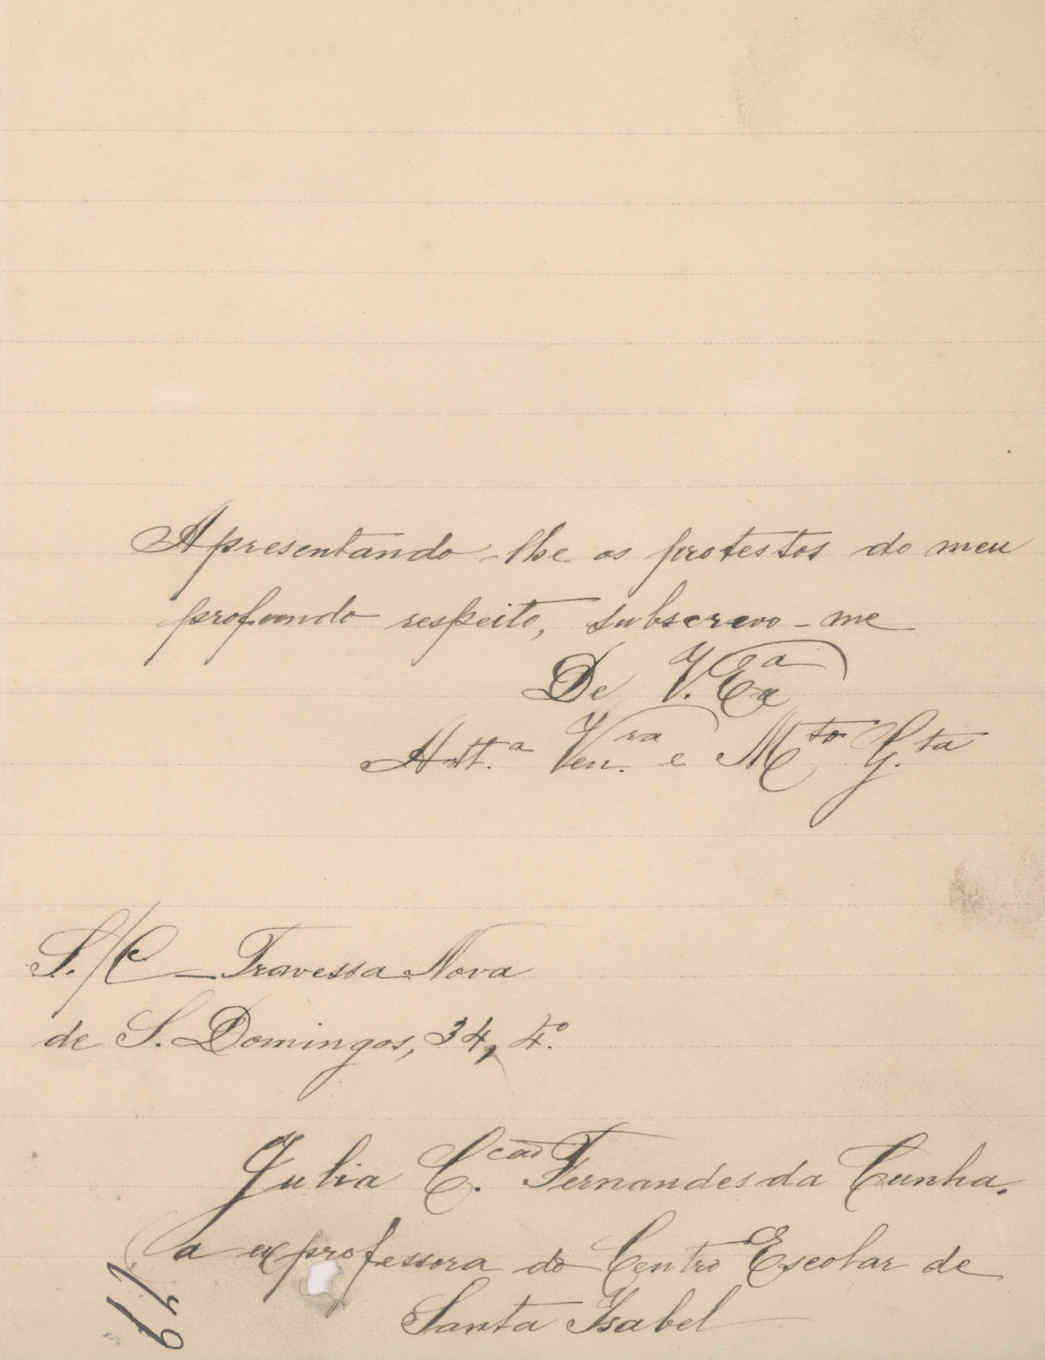 Apresentando-lhe os protestos do meu
profundo respeito, subscrevo-me
De V. Exª
Att.ª Ven.ra e Mto G.ta
S./C — Travessa Nova
de S. Domingos, 34, 4.º
Julia C.cão Fernandes da Cunha.
a ex professora do Centro Escolar de
Santa Isabel